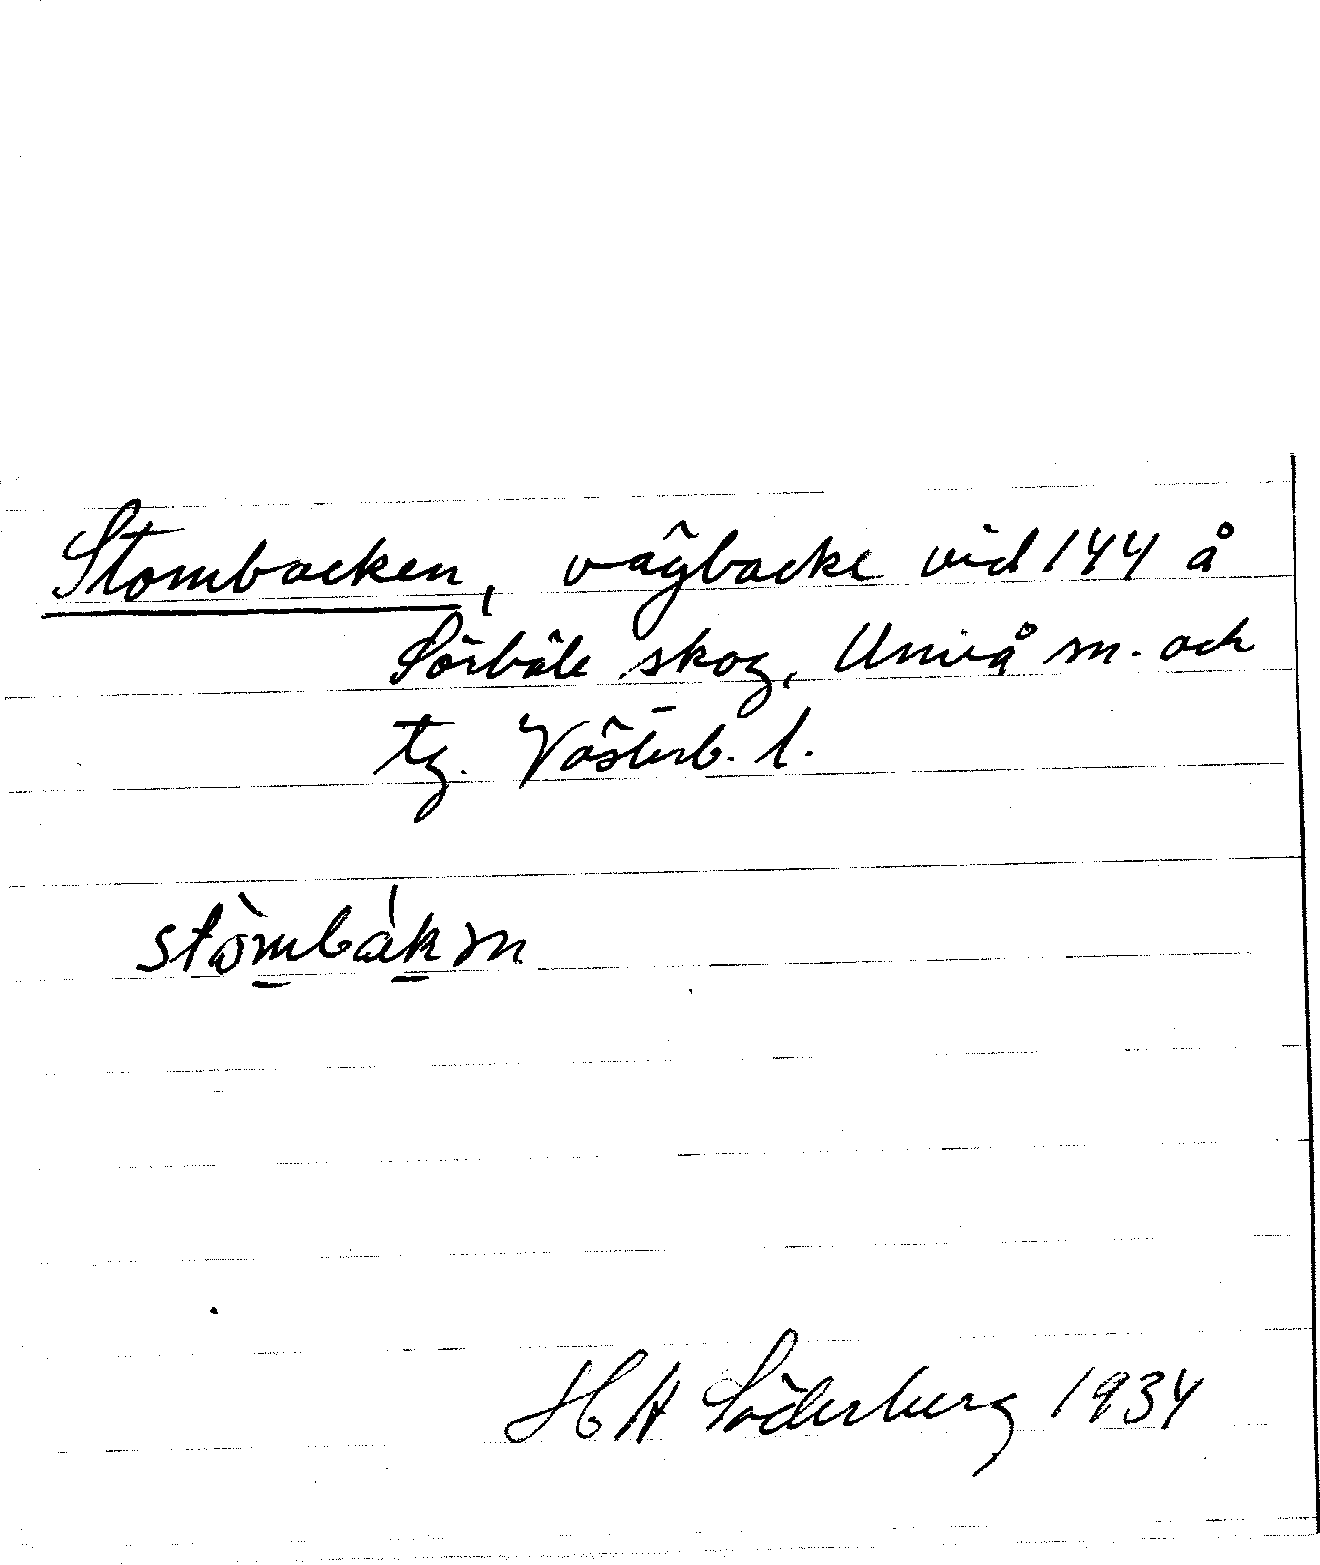 Stombacken, vägbacke vid 144 å
Sörböle skog, Umeå sn. och
tg. Västerb. l.
stòmbák m
H A Söderberg 1934